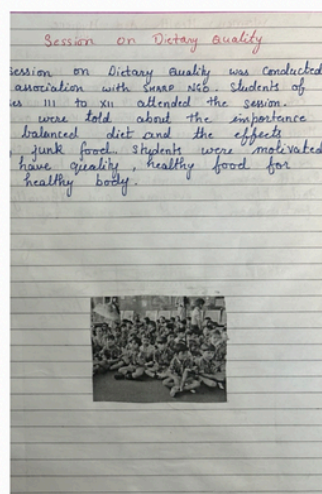 Session on Dietary Quality
session on Dietary Quality was conducted
association with SHARP NGO. Students of
es III to XII attended the session.
were told about the importance
balanced diet and the effects
junk food. Students were motivated
have quality, healthy food for
healthy body.